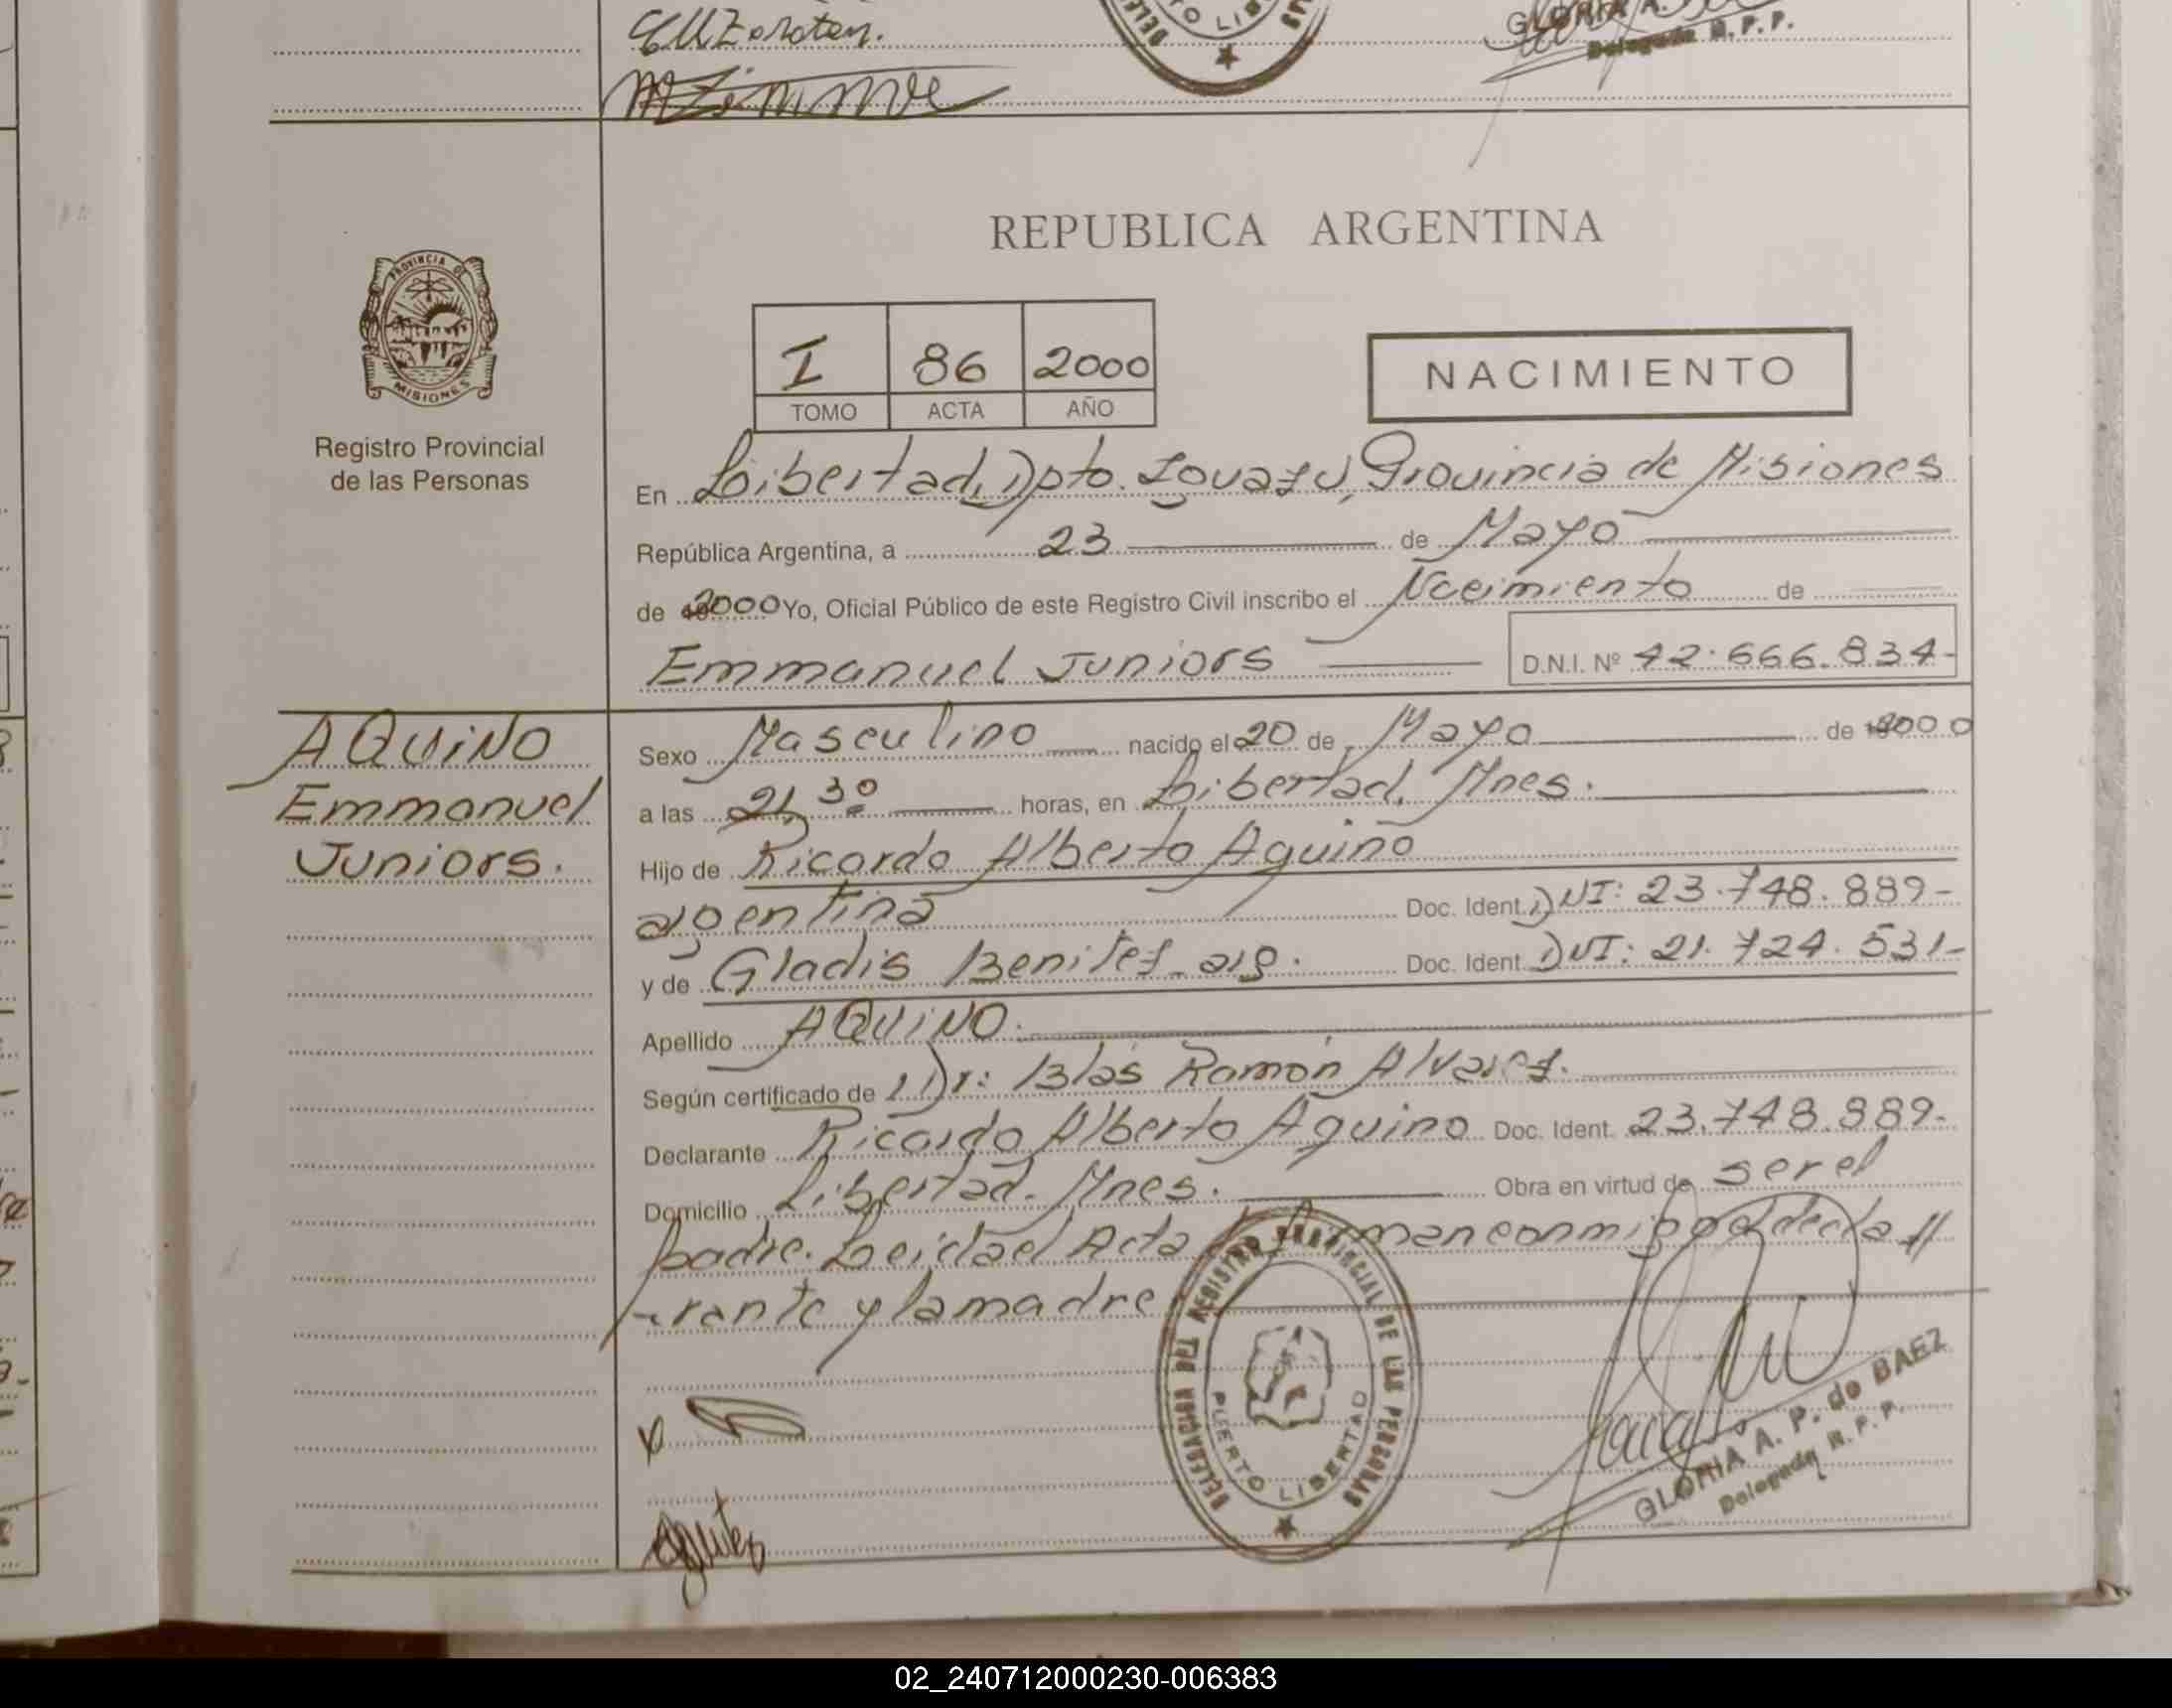 GLORIA A.
Delegada R.P.P.
REPUBLICA ARGENTINA
PROVINCIA DE
MISIONES
Registro Provincial
de las Personas
I 86 2000
TOMO ACTA AÑO
NACIMIENTO
En Libertad, Dpto. Iguazú, Provincia de Misiones
República Argentina, a 23 de Mayo
de 2000 Yo, Oficial Público de este Registro Civil inscribo el Nacimiento de
Emmanuel Juniors D.N.I. Nº 42.666.834-
AQUINO
Emmanuel
Juniors.
Sexo Masculino nacido el 20 de Mayo de 2000
a las 21,30 horas, en Libertad, Mnes.
Hijo de Ricardo Alberto Aquino
argentina Doc. Ident. DNI: 23.748.889-
y de Gladis Benitez - arg. Doc. Ident. DNI: 21.724.531-
Apellido AQUINO.
Según certificado de Dr: Blas Ramón Alvarez.
Declarante Ricardo Alberto Aquino Doc. Ident. 23.748.889-
Domicilio Libertad. Mnes. Obra en virtud de ser el
padre. Leida el Acta firman conmigo el decla //
rante y la madre
DELEGACION DEL REGISTRO PROVINCIAL DE LAS PERSONAS
PUERTO LIBERTAD
GLORIA A. P. de BAEZ
Delegada R.P.P.
02_240712000230-006383